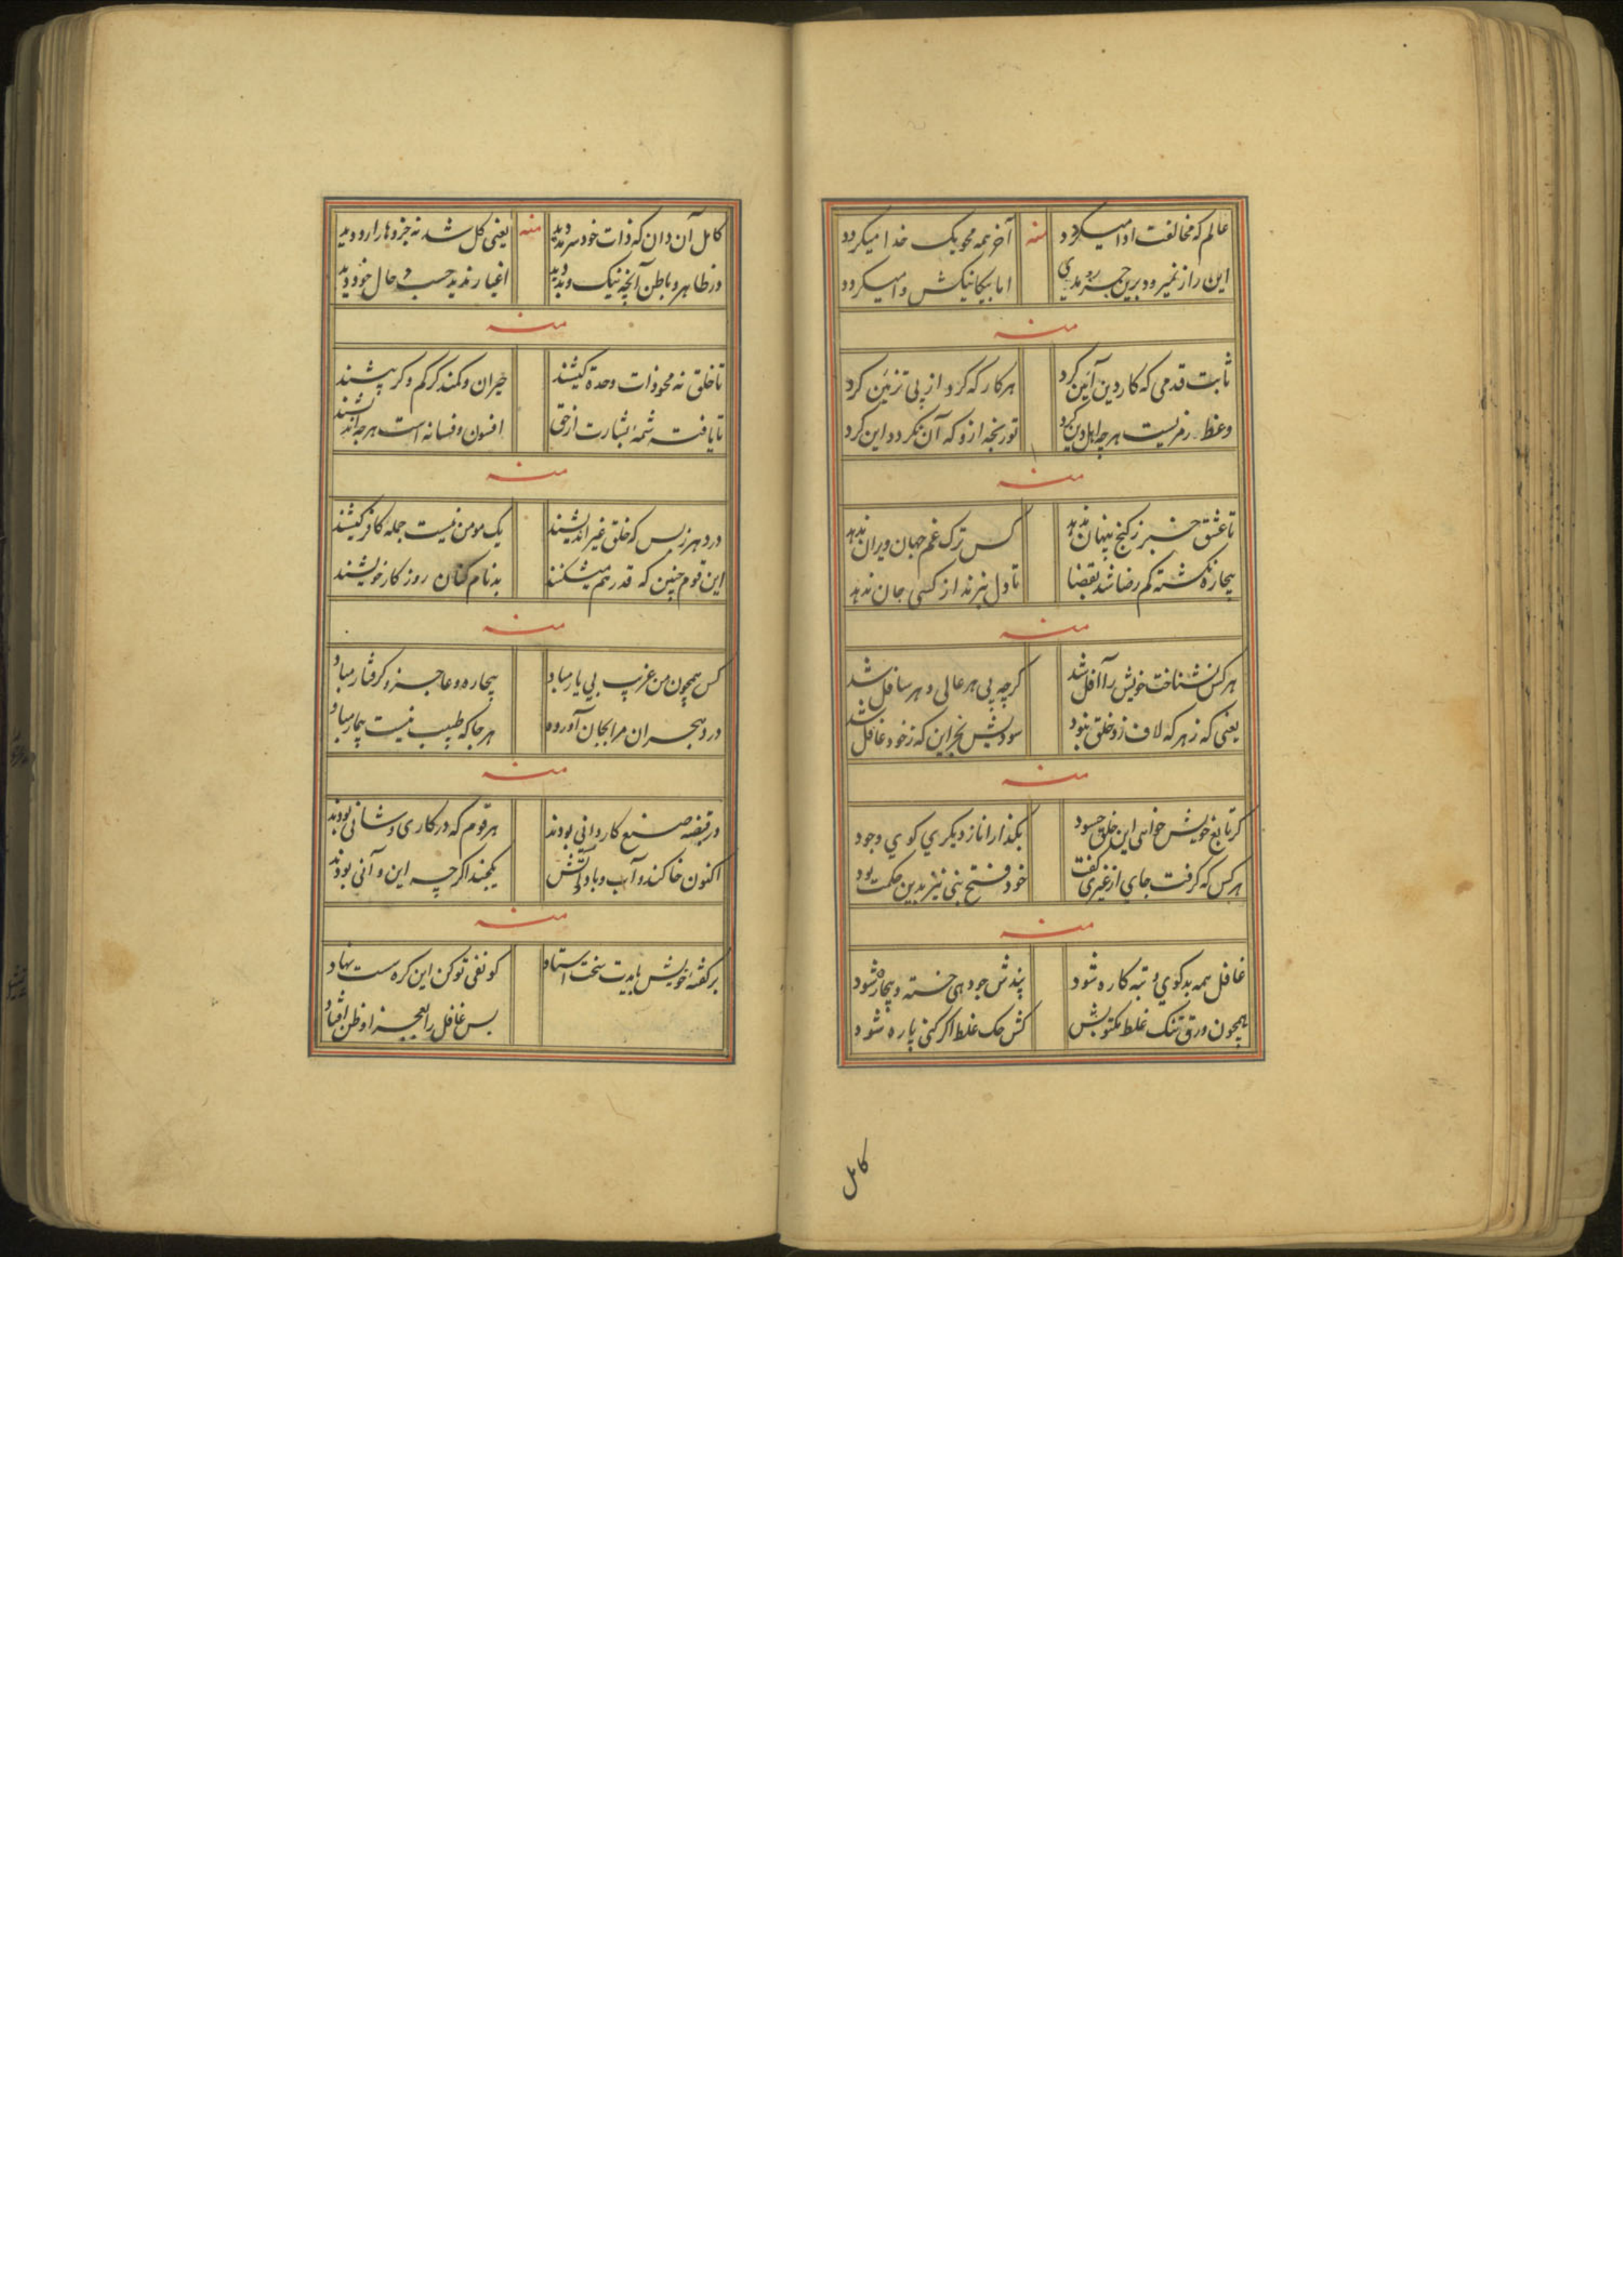 عالم که مخالفت ادا میکردد منه آخر همه محو یک خدا میکردد
این راز نمیرود برین اما بیکانیکش وا میکردد
منه
ثابت قدمی که کار دین آئین کرد هر کار که کرد از پی تزئین کرد
وعظ رمزیست هر چه اهل دین کرد تو رنجه ازو که آن نکردد این کرد
منه
تا عشق خبر ز کنج پنهان ندهد کس ترک غم جهان ویران ندهد
بیچاره نکشته کم رضا شد بقضا تا دل نبرند از کسی جان ندهد
منه
هر کس نشناخت خویش را آفل شد کرچه پی هر عالی و هر سافل شد
یعنی که ز هر که لاف زد خلق نبود سودیش بجز این که ز خود غافل شد
منه
کر تابع خویش خواهی این خلق حسود بکذار انا ز دیکری کوی وجود
هر کس که کرفت جای از غیری کفت خود فتح بنی نیز بدین حکمت بود
منه
غافل همه بدکوی و تبه کاره شود پندش چو دهی خسته و بیچاره شود
همچون ورق تنک غلط مکتوبش کش حک غلط اکر کنی پاره شود
کامل
کامل آن دان که ذات خود سرمد دید منه یعنی کل شد نه جزوها را رد دید
در ظاهر و باطن آنچه نیک و بد دید اغیار ندید حسب حال خود دید
منه
تا خلق نه محو ذات وحدة کیشند حیران و کمند کر کم و کر بیشند
تا یافت شمه بشارت از حق افسون و فسانه است هر چه اندیشند
منه
در دهر ز بس که خلق غیر اندیشند یک مومن نیست جمله کافر کیشند
این قوم چنین که قدر هم میشکنند بدنام کنان روز کار خویشند
منه
کس همچون من غریب بی یار مباد بیچاره و عاجز و کرفتار مباد
درد هجران مرا بجان آورده هر جا که طبیب نیست بیمار مباد
منه
در قبضه صنع کاردانی بودند هر قوم که در کاری و شانی بودند
اکنون خاکند و آب و باد و آتش یکجند اکر چه این و آنی بودند
منه
بر کفته خویش بایدت سخت استاد کو نفی تو کن این کره سست نهاد
بس غافل را بعجز او ظن افتاد